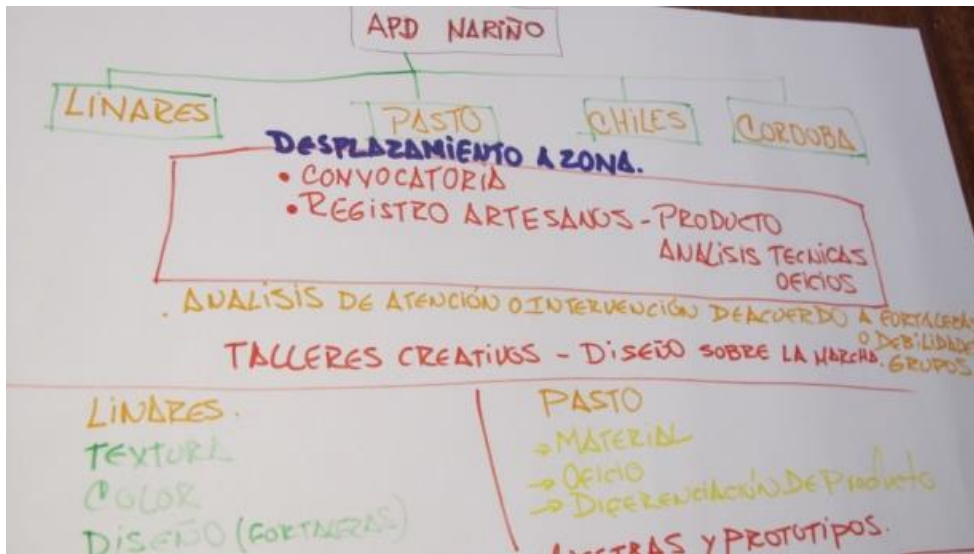 APD NARIÑO
LINARES PASTO CHILES CORDOBA
DESPLAZAMIENTO A ZONA.
• CONVOCATORIA
• REGISTRO ARTESANOS - PRODUCTO
ANALISIS TECNICAS
OFICIOS
. ANALISIS DE ATENCIÓN O INTERVENCIÓN DEACUERDO A FORTALEZAS
O DEBILIDADE
GRUPOS
TALLERES CREATIVOS - DISEÑO SOBRE LA MARCHA.
LINARES.
TEXTURA
COLOR
DISEÑO (FORTALEZAS)
PASTO
→ MATERIAL
→ OFICIO
→ DIFERENCIACIÓN DE PRODUCTO
Y PROTOTIPOS.